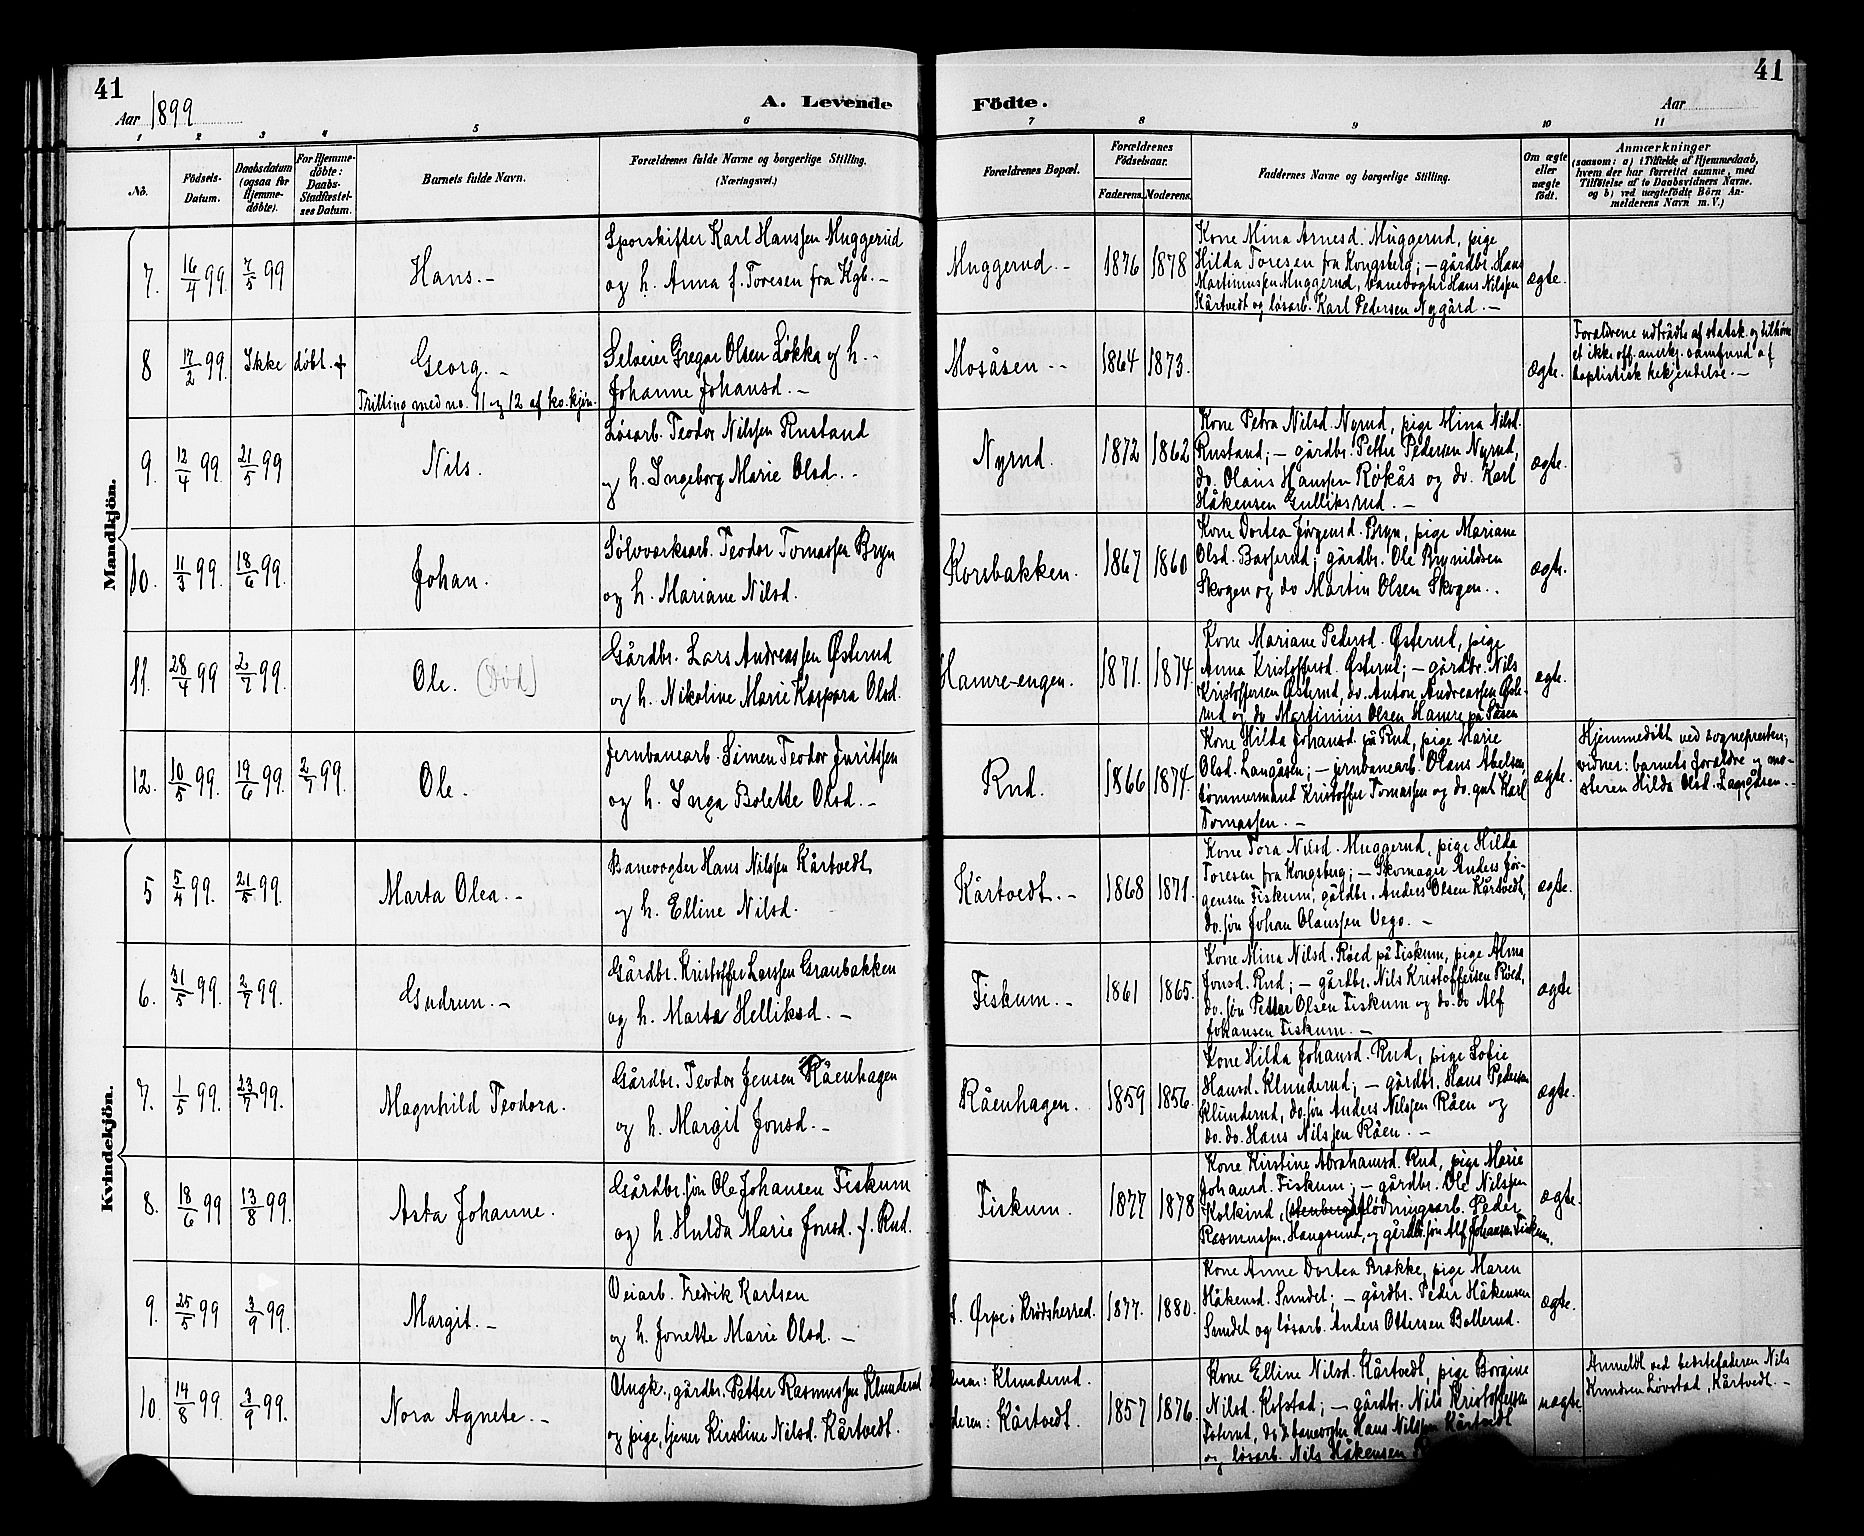 41
41
Aar 1899
A. Levende Födte.
Aar
1 2 3 4 5 6 7 8 9 10 11
No.
Födsels-Datum.
Daabsdatum (ogsaa for Hjemme-döbte).
For Hjemme-döbte: Daabs-Stadfæstel-ses Datum.
Barnets fulde Navn.
Forældrenes fulde Navne og borgerlige Stilling. (Næringsvei.)
Forældrenes Bopæl.
Forældrenes Födselsaar.
Faderens. Moderens.
Faddernes Navne og borgerlige Stilling.
Om ægte eller uægte födt.
Anmærkninger
(saasom: a) i Tilfælde af Hjemmedaab,
hvem der har forrettet samme, med
Tilföielse af to Daabsvidners Navne,
og b) ved uægtefödte Börn An-
melderens Navn m. V.)
Mandkjön.
7. 16/4 99. 7/5 99 Hans. –
Sporskifter Karl Hanssen Muggerud
og h. Anna f. Toresen fra Kgb. –
Muggerud. – 1876 1878
Kone Mina Arnesd. Muggerud, pige
Hilda Toresen fra Kongsberg; – gårdbr. Hans
Martinussen Muggerud, banevogter Hans Nilssen
Kårtvedt og løsarb. Karl Pedersen Nygård. –
ægte.
8 17/2 99. Ikke døbt. + Georg. –
Trilling med no. 11 og 12 af kv. kjøn.
Selveier Gregar Olsen Løkka og h. –
Johanne Johansd. –
Mosåsen – 1864 1873.
ægte.
Forældrene udtrådte af statsk. og tilhøre
et ikke off. anerkj. samfund af
baptistisk bekjendelse. –
9. 12/4 99. 21/5 99 Nils.
Løsarb. Teodor Nilssen Rustand
og h. Ingeborg Marie Olsd. –
Nyrud. 1872 1862
Kone Petra Nilsd. Nyrud, pige Mina Nilsd.
Rustand; – gårdbr. Petter Pedersen Nyrud,
do. Olaus Hanssen Røkås og do. Karl
Håkensen Gulliksrud. –
ægte.
10. 11/3 99. 18/6 99. Johan.
Sølvværksarb. Teodor Tomassen Bryn
og h. Mariane Nilsd.
Korsbakken. 1867 1860
Kone Dortea Jørgensd. Bryn, pige Mariane
Olsd. Basserud; gårdbr. Ole Brynildsen
Skogen og do Martin Olsen Skogen. –
ægte.
11. 28/4 99 2/7 99. Ole. (Død)
Gårdbr. Lars Andreassen Østerud
og h. Nikoline Marie Kaspara Olsd.
Hamre-engen. 1871. 1874.
Kone Mariane Pedersd. Østerud, pige
Anna Kristoffersd. Østerud; – gårdbr. Nils
Kristoffersen Østerud, do. Anton Andreassen Øste-
rud og do Martinius Olsen Hamre på Såsen
ægte.
12. 10/5 99. 19/6 99. 2/7 99. Ole.
Jernbanearb. Simen Teodor Juritssen
og h. Inga Bolette Olsd. –
Rud. 1866 1874.
Kone Hilda Johansd. på Rud, pige Marie
Olsd. Langåsen; – jernbanearb. Olaus Abelsen,
tømmermand Kristoffer Tomassen og do. gut Karl
Tomassen. –
ægte.
Hjemmedøbt ved sognepresten;
vidner: barnets forældre og mo-
steren Hilda Olsd. Langåsen. –
Kvindekjön.
5 5/4 99. 21/5 99. Marta Olea. –
Banevogter Hans Nilssen Kårtvedt
og h. Elline Nilsd.
Kårtvedt. – 1868 1871.
Kone Tora Nilsd. Muggerud, pige Hilda
Toresen fra Kongsberg; – Skomager Anders Jør-
gensen Fiskum, gårdbr. Anders Olsen Kårtvedt,
do. søn Johan Olaussen Vego. –
ægte.
6. 31/5 99. 2/7 99. Gudrun. –
Gårdbr. Kristoffer Larssen Granbakken
og h. Marta Helliksd. –
Fiskum. – 1861 1865.
Kone Mina Nilsd. Røed på Fiskum, pige Alma
Jonsd. Rud; – gårdbr. Nils Kristoffersen Røed,
do. søn Petter Olsen Fiskum og do. do Alf
Johansen Fiskum. –
ægte
7. 1/5 99. 23/7 99. Magnhild Teodora.
Gårdbr. Teodor Jensen Råenhagen
og h. Margit Jonsd. –
Råenhagen. 1859 1856.
Kone Hilda Johansd. Rud, pige Sofie
Hansd. Klunderud; – gårdbr. Hans Pedersen
Klunderud, do. søn Anders Nilssen Råen og
do. do. Hans Nilssen Råen. –
ægte.
8. 18/6 99 13/8 99. Asta Johanne.
Gårdbr. søn Ole Johansen Fiskum
og h. Hulda Marie Jonsd. f. Rud.
Fiskum. 1877 1878
Kone Kirstine Abrahamsd. Rud, pige Marie
Johansd. Fiskum; – gårdbr. Ole Nilssen
Kolkind, flødningsarb. Peder
Rasmussen, Haugsund, og gårdbr. søn Alf Johansen Fiskum.
ægte.
9. 25/5 99 3/9 99. Margit. –
Veiarb. Fredrik Karlsen
og h. Jonette Marie Olsd. –
f. Ørpe i Krødsherred. 1877. 1880.
Kone Anne Dortea Brække, pige Maren
Håkensd. Sundet; – gårdbr. Peder Håkensen
Sundet og løsarb. Anders Ottersen Bollerud.
ægte.
10. 14/8 99. 3/9 99. Nora Agnete. –
Ungk., gårdbr. Petter Rasmussen Klunderud
og pige, tjener Kirstine Nilsd. Kårtvedt.
Klunderud.
Kårtvedt. 1857 1876.
Kone Elline Nilsd. Kårtvedt, pige Borgine
Nilsd. Kolstad; – gårdbr. Nils Kristoffersen
banevogter Hans Nilssen Kårtvedt
og løsarb. Nils Håkensen
uægte.
Anmeldt ved bedstefaderen Nils
Knudsen Løvstad, Kårtvedt. –